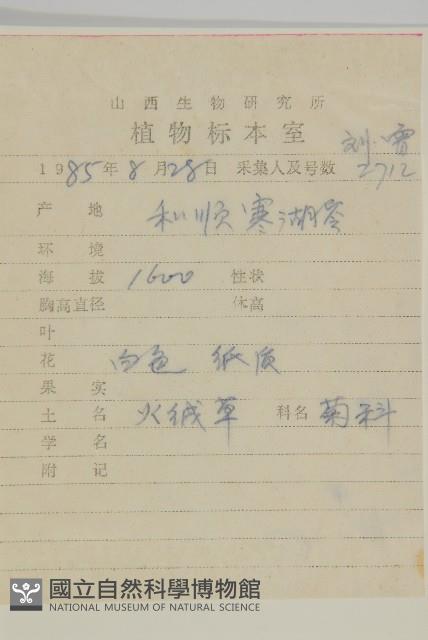 山西生物研究所
植物标本室
1985年8月28日 采集人及号数 刘 2712
产地 和顺寒湖岭
环境
海拔 1600 性状
胸高直径 体高
叶
花 白色 纸质
果实
土名 火绒草 科名 菊科
学名
附记
國立自然科學博物館
NATIONAL MUSEUM OF NATURAL SCIENCE